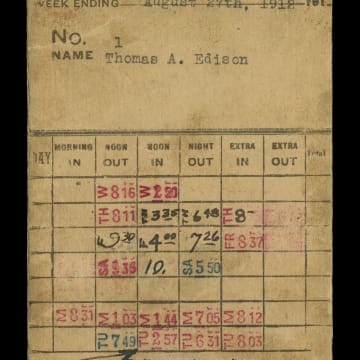 WEEK ENDING August 27th, 1918
No. 1
NAME Thomas A. Edison
DAY MORNING IN NOON OUT NOON IN NIGHT OUT EXTRA IN EXTRA OUT Total
W 8 16 W 2 20
TH 8 11 3 35 6 48 TH 8
F 9 30 F 4 00 7 26 FR 8 37
SA 3 35 10. SA 5 50
M 8 31 M 1 03 M 1 44 M 7 05 M 8 12
TU 7 49 TU 2 57 TU 6 31 TU 8 03